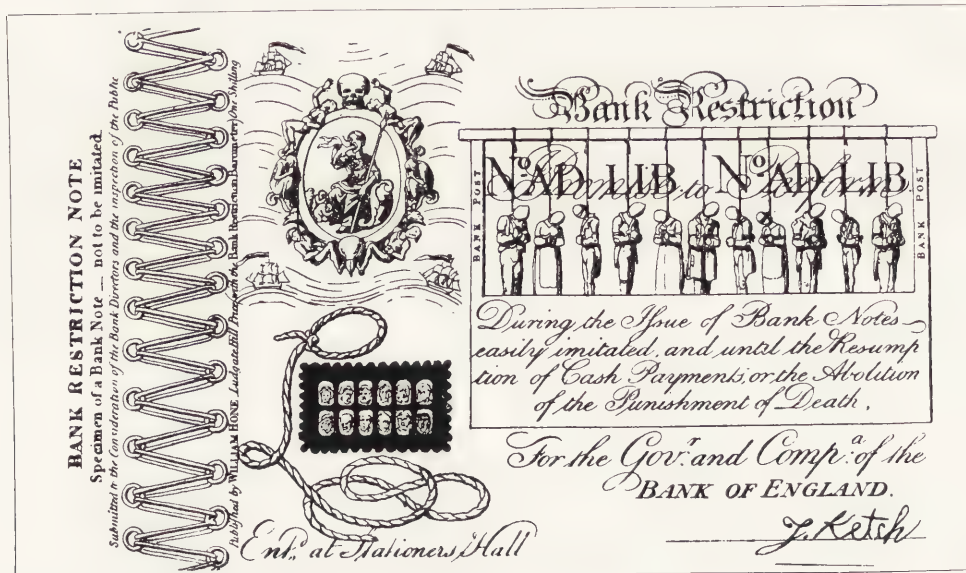 BANK RESTRICTION NOTE
Specimen of a Bank Note — not to be imitated.
Submitted to the Consideration of the Bank Directors and the inspection of the Public
Published by WILLIAM HONE Ludgate Hill Price with the Bank Restriction Barometer, One Shilling
Bank Restriction
BANK POST
No. AD. LIB.
No. AD. LIB.
to Perform
BANK POST
During the Issue of Bank Notes
easily imitated, and until the Resump
tion of Cash Payments, or the Abolition
of the Punishment of Death,
For the Govr. and Compa. of the
BANK OF ENGLAND.
J. Ketch
Entd. at Stationers Hall